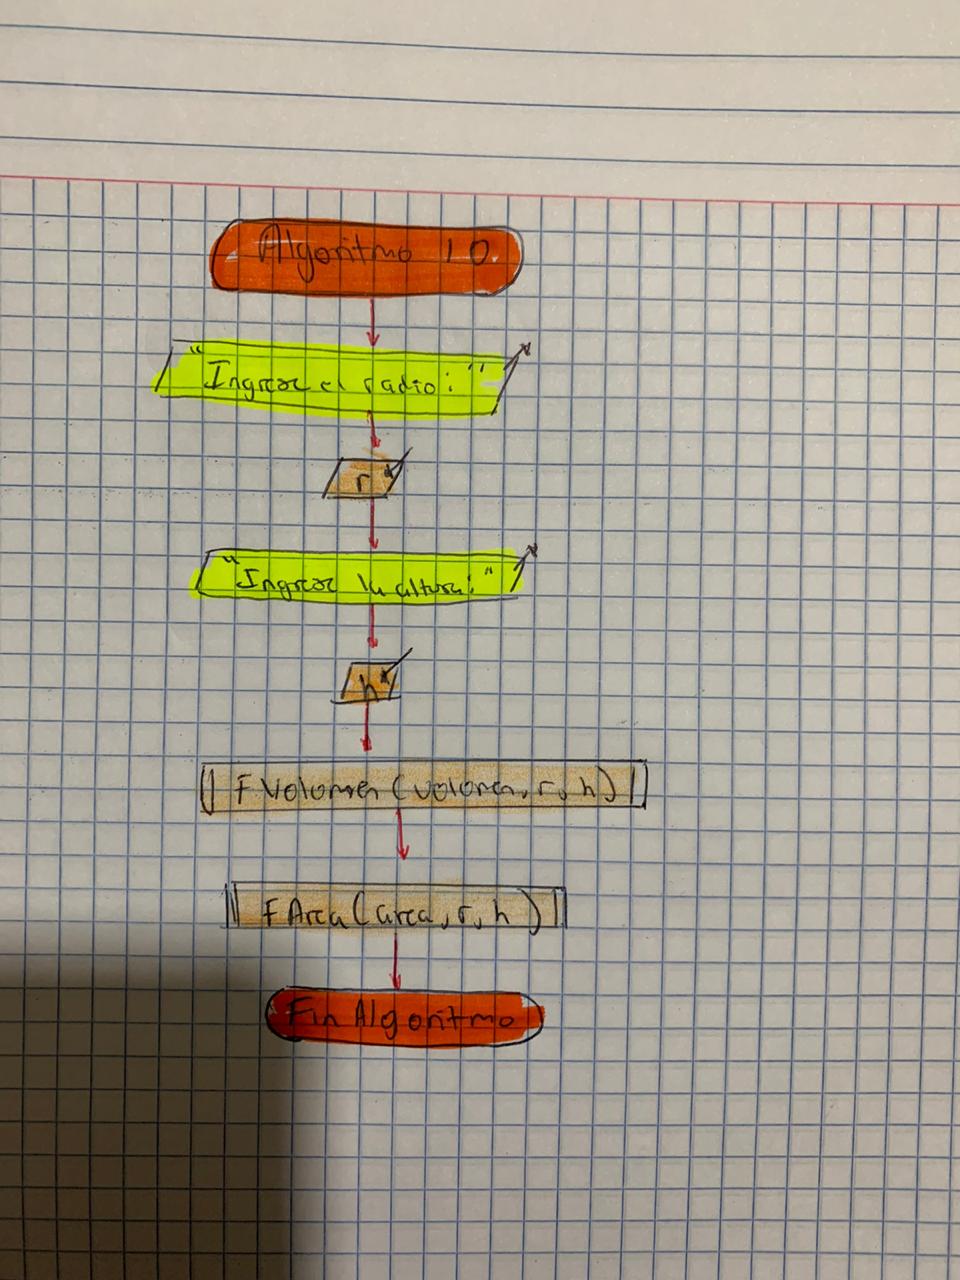 Algoritmo 10
"Ingresar el radio:"
r
"Ingresar la altura:"
h
FVolumen(volumen, r, h)
FArea(area, r, h)
Fin Algoritmo